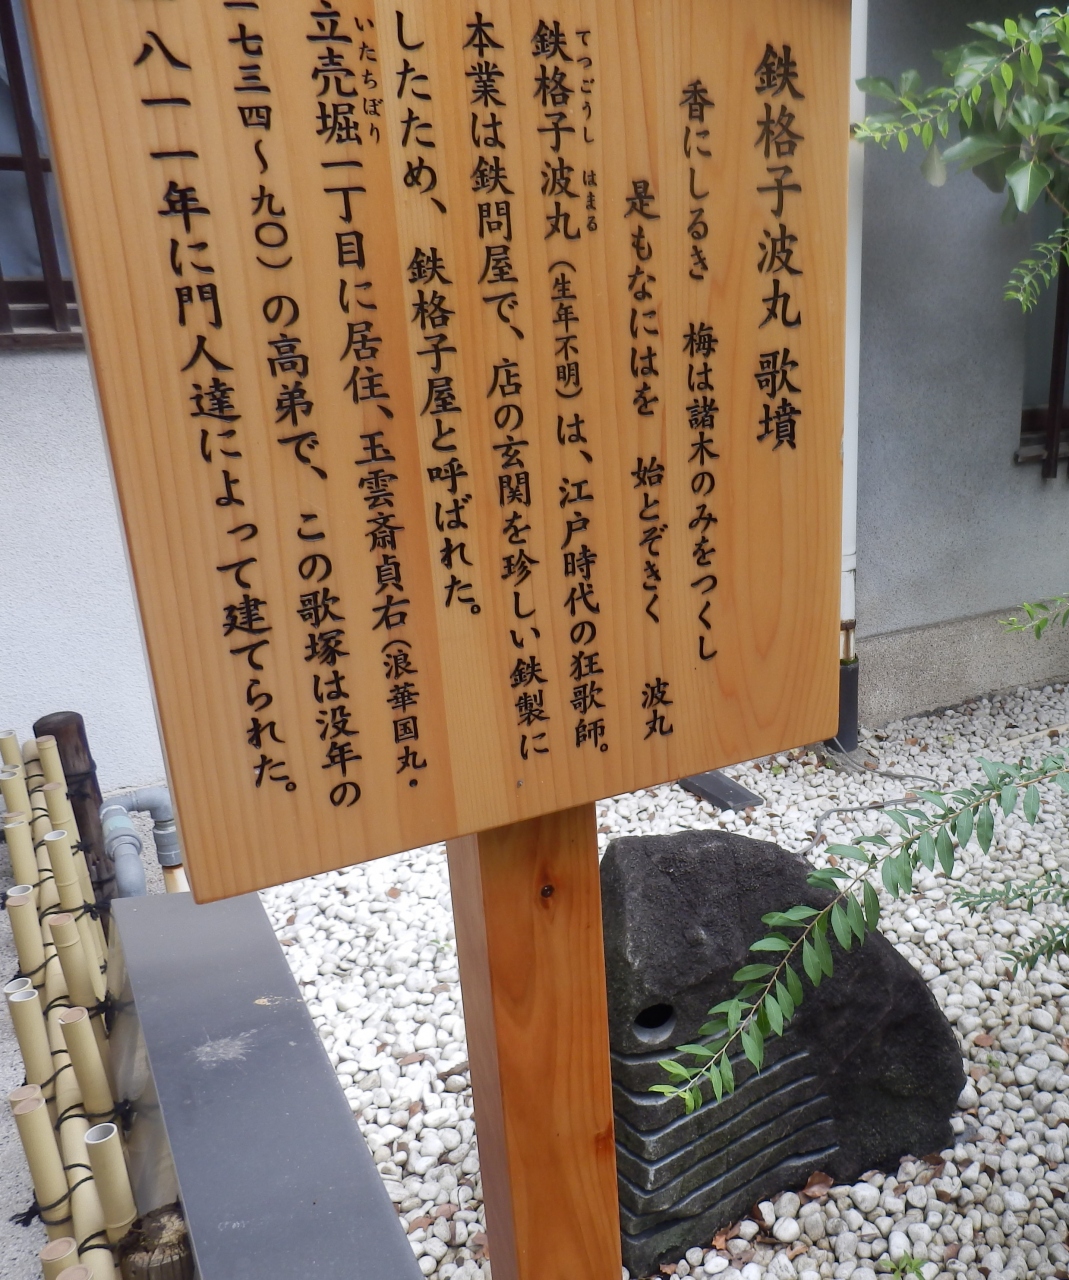 鉄格子波丸 歌墳
香にしるき 梅は諸木のみをつくし
是もなにはを 始とぞきく 波丸
てつごうし はまる
鉄格子波丸(生年不明)は、江戸時代の狂歌師。
本業は鉄問屋で、店の玄関を珍しい鉄製に
したため、鉄格子屋と呼ばれた。
いたちぼり
立売堀一丁目に居住、玉雲斎貞右(浪華国丸・
一七三四〜九〇)の高弟で、この歌塚は没年の
八一一年に門人達によって建てられた。